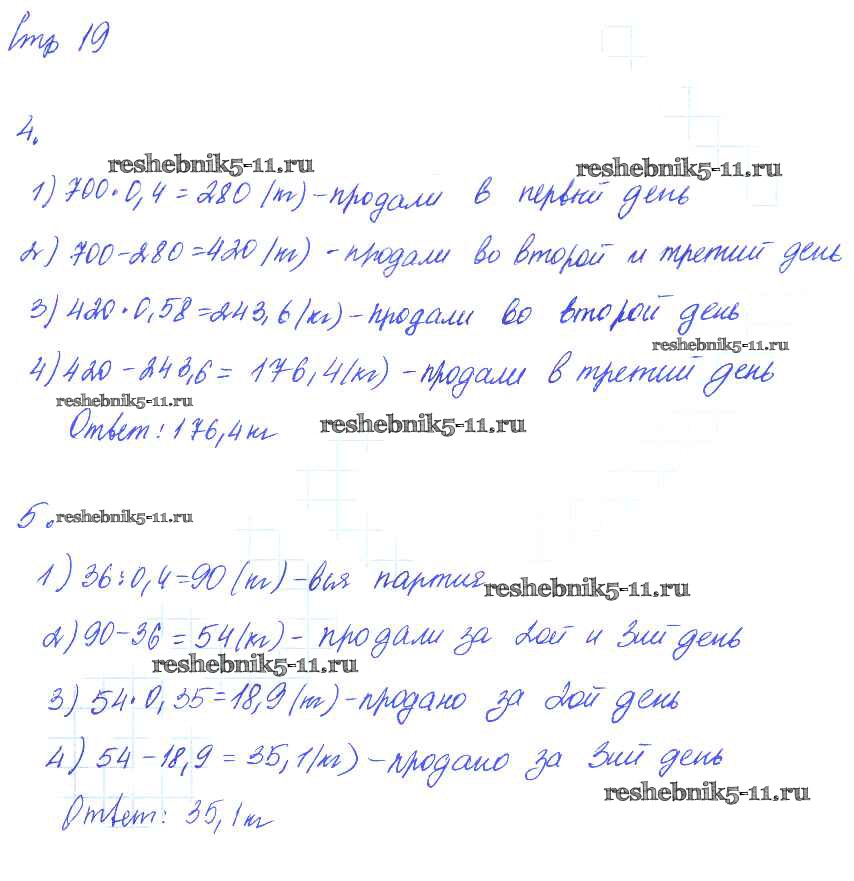 Стр 19
4.
reshebnik5-11.ru reshebnik5-11.ru
1) 700·0,4=280 (кг) - продали в первый день
2) 700-280=420 (кг) - продали во второй и третий день
3) 420·0,58=243,6 (кг) - продали во второй день
reshebnik5-11.ru
4) 420-243,6= 176,4 (кг) - продали в третий день
reshebnik5-11.ru
Ответ: 176,4 кг reshebnik5-11.ru
5. reshebnik5-11.ru
1) 36:0,4=90 (кг) - вся партия reshebnik5-11.ru
2) 90-36=54 (кг) - продали за 2ой и 3ий день
reshebnik5-11.ru
3) 54·0,35=18,9 (кг) - продано за 2ой день
4) 54-18,9=35,1 (кг) - продано за 3ий день
reshebnik5-11.ru
Ответ: 35,1 кг